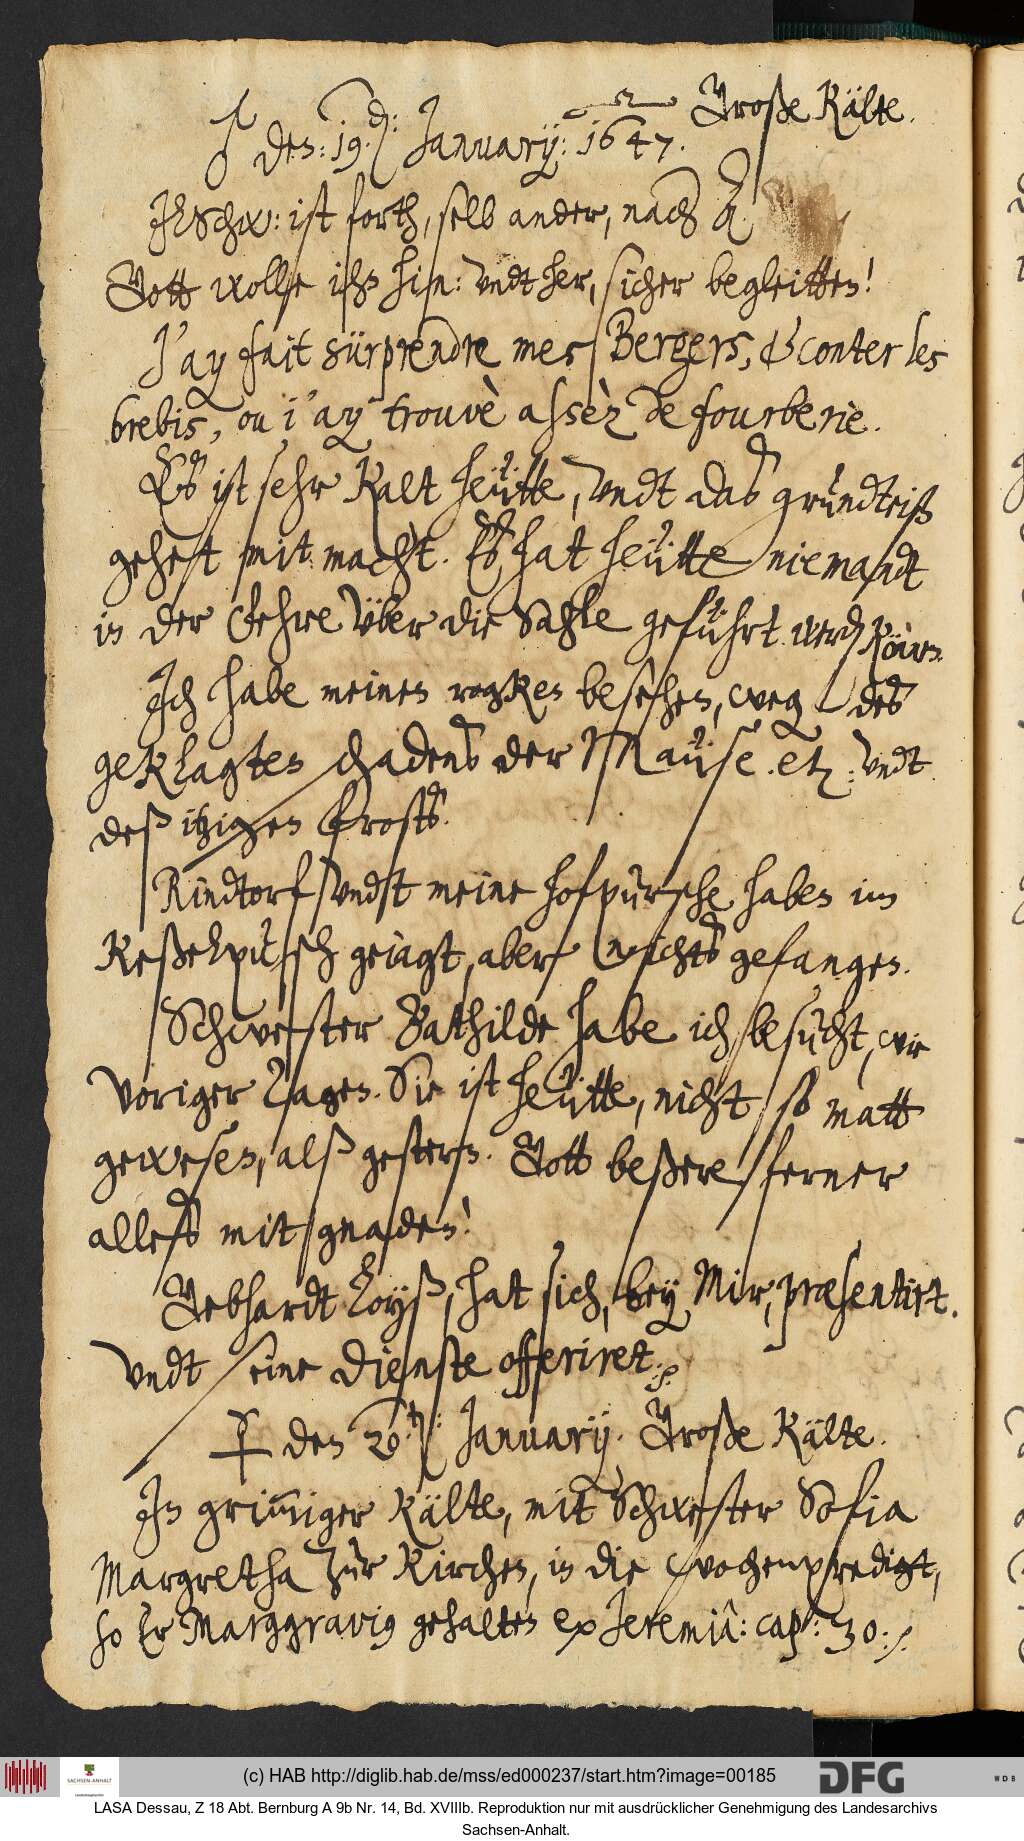 ♂ den: 19. d: January: 1647. Große Kälte.
JESchw: ist forth, selb ander, nach A.
Gott wolle ihn hin: vndt her, sicher begleitten!
J'ay fait sürprendre mes Bergers, & conter les
brebis, ou i'ay trouvè assèz de fourberie.
Es ist sehr kalt heütte, vndt das grundteiß
gehet mit macht. Es hat heütte niemandt
in der Fehre über die Sahle geführt werden können.
Ich habe meinen rogken besehen, weg. des
geklagten schadens der Maüse. etz: vndt
deß itzigen frosts.
Rindtorf vndt meine hofpursche haben im
Keßelpusch geiagt, aber nichts gefangen.
Schwester Bathilde habe ich besucht, wie
voriger Tagen. Sie ist heütte, nicht so matt
gewesen, alß gestern. Gott beßere ferner
alles mit gnaden!
Gebhardt Hoyß, hat sich, bey Mir, præsentirt.
vndt seine dienste offeriret.
den 20. January. Große Kälte.
In grim̅iger kälte, mit Schwester Sofia
Margretha zur Kirchen, in die wochenpredigt,
so Er Marggravig gehalten ex Jeremiâ: cap: 30.
SACHSEN-ANHALT
(c) HAB http://diglib.hab.de/mss/ed000237/start.htm?image=00185
DFG
WDB
LASA Dessau, Z 18 Abt. Bernburg A 9b Nr. 14, Bd. XVIIIb. Reproduktion nur mit ausdrücklicher Genehmigung des Landesarchivs
Sachsen-Anhalt.